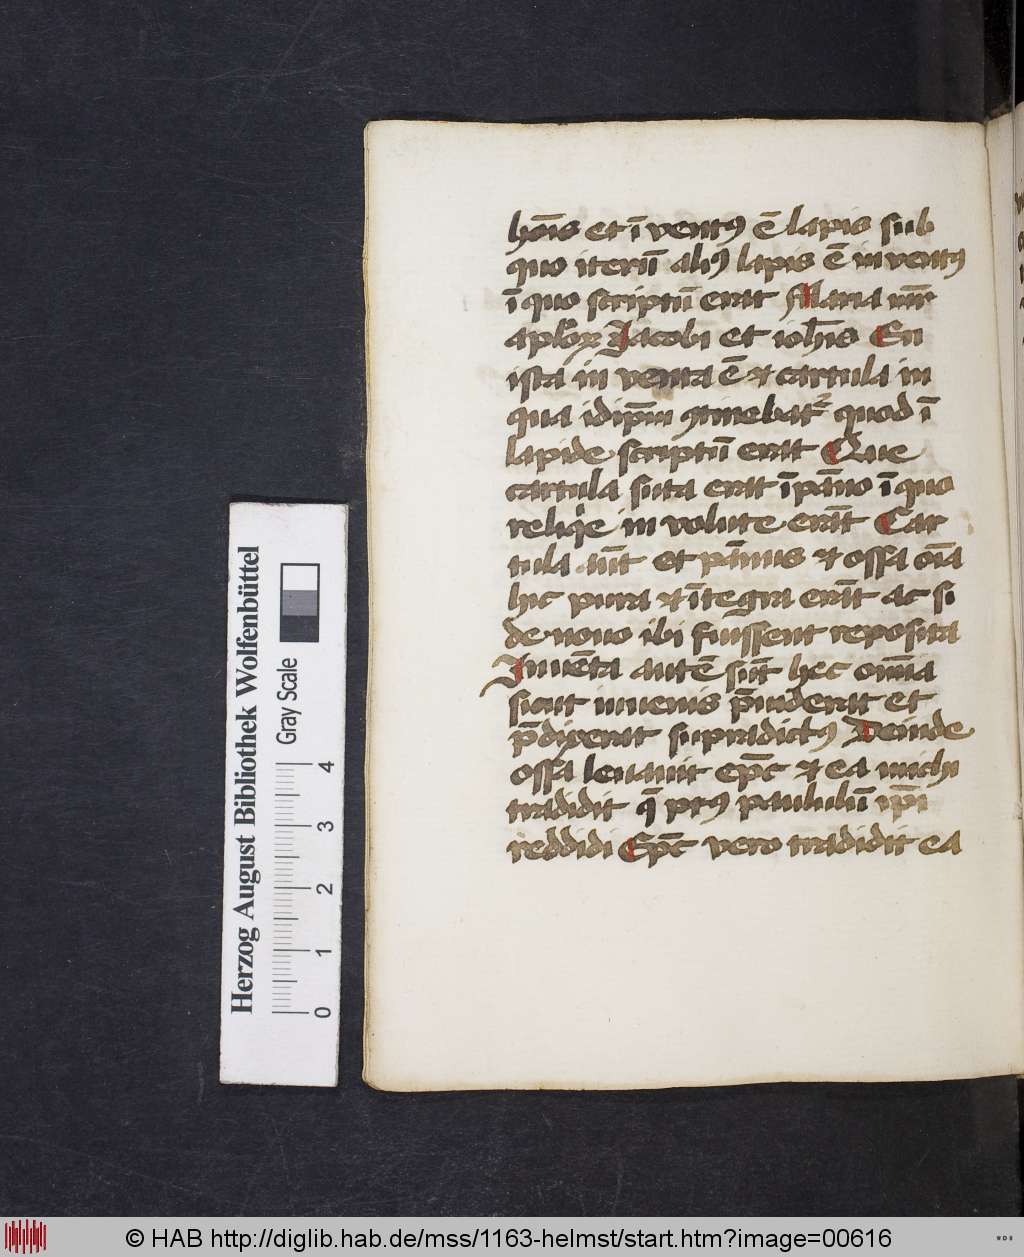 hōis et ī ventꝰ ē lapis sub
quo iterū aliꝰ lapis ē inventꝰ
ī quo scriptū erat Maria mr̄
aplōꝝ Jacobi et ioh̄is En
ista in venta ē et cartula in
qua idip̄m ꝯtinebat᷑ quod ī
lapide scriptū erat Que
cartula suta erat ī pāno ī quo
reliq̄e in volute erāt Car
tula aūt et pānus et ossa oīa
hic pura et ītegra erāt ac si
de novo ibi fuissent reposita
Inuēta autē sūt hec omīa
sicut iuuenis p̄uiderat et
p̄dixerat supradictꝰ Deinde
ossa leuauit ep̄c et ea michi
tradidit q̄ ptꝰ paululū ip̄i
reddidi Ep̄c vero tradidit ea
Herzog August Bibliothek Wolfenbüttel
Gray Scale
0 1 2 3 4
© HAB http://diglib.hab.de/mss/1163-helmst/start.htm?image=00616